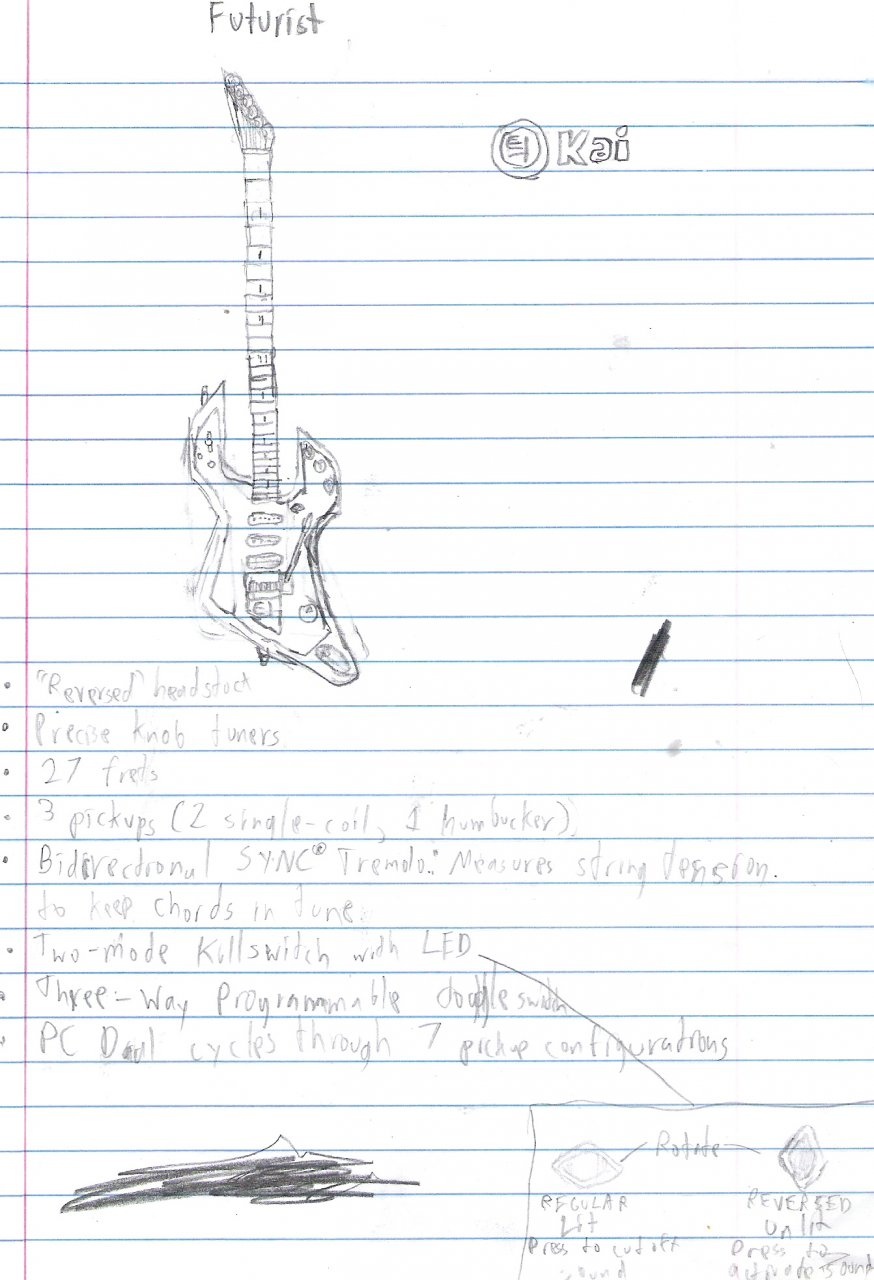 Futurist
Kai
• "Reversed" headstock
• Precise knob tuners
• 27 frets
• 3 pickups (2 single-coil, 1 humbucker)
• Bidirectional SYNC® Tremolo: Measures string tension
to keep chords in tune.
• Two-mode Killswitch with LED
• Three-Way Programmable toggle switch
• PC Dial cycles through 7 pickup configurations
Rotate
REGULAR
Lit
Press to cut off
sound
REVERSED
Unlit
Press to
activate sound